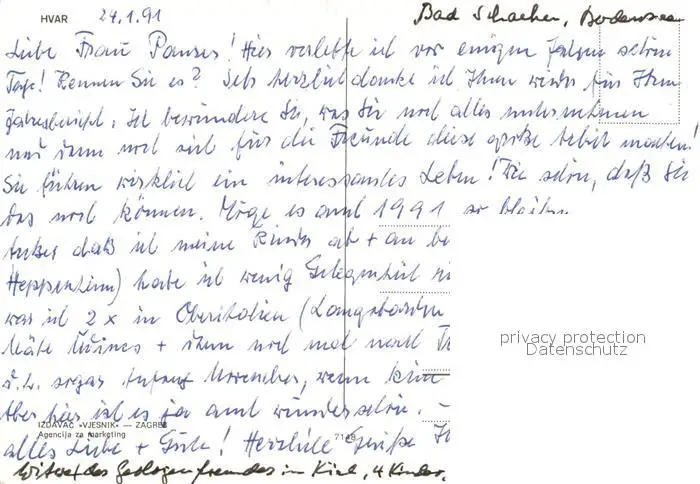 HVAR 24.1.91 Bad Schachen, Bodensee
Liebe Frau Panses! Hier verlebte ich vor einigen Jahren schöne
Tage! Kennen Sie es? Sehr herzlich danke ich Ihnen wieder für Ihren
Jahresbericht. Ich bewundere Sie, was Sie noch alles unternehmen
und dann noch sich für die Freunde diese große Arbeit machen!
Sie führen wirklich ein interessantes Leben! Wie schön, daß Sie
das noch können. Möge es auch 1991 so bleiben.
Außer daß ich meine Kinder ab + an be
Heppenheim) habe ich wenig Gelegenheit
war ich 2 x in Oberitalien (Langobarden
Städte + dann noch mal nach
sogar Anfang November, wenn
Aber hier ist es ja auch wunderschön. –
alles Liebe + Gute! Herzliche Grüße
IZDAVAČ »VJESNIK« — ZAGREB
Agencija za marketing
7149
Witwe des Geologenfreundes in Kiel, 4 Kinder.
privacy protection
Datenschutz